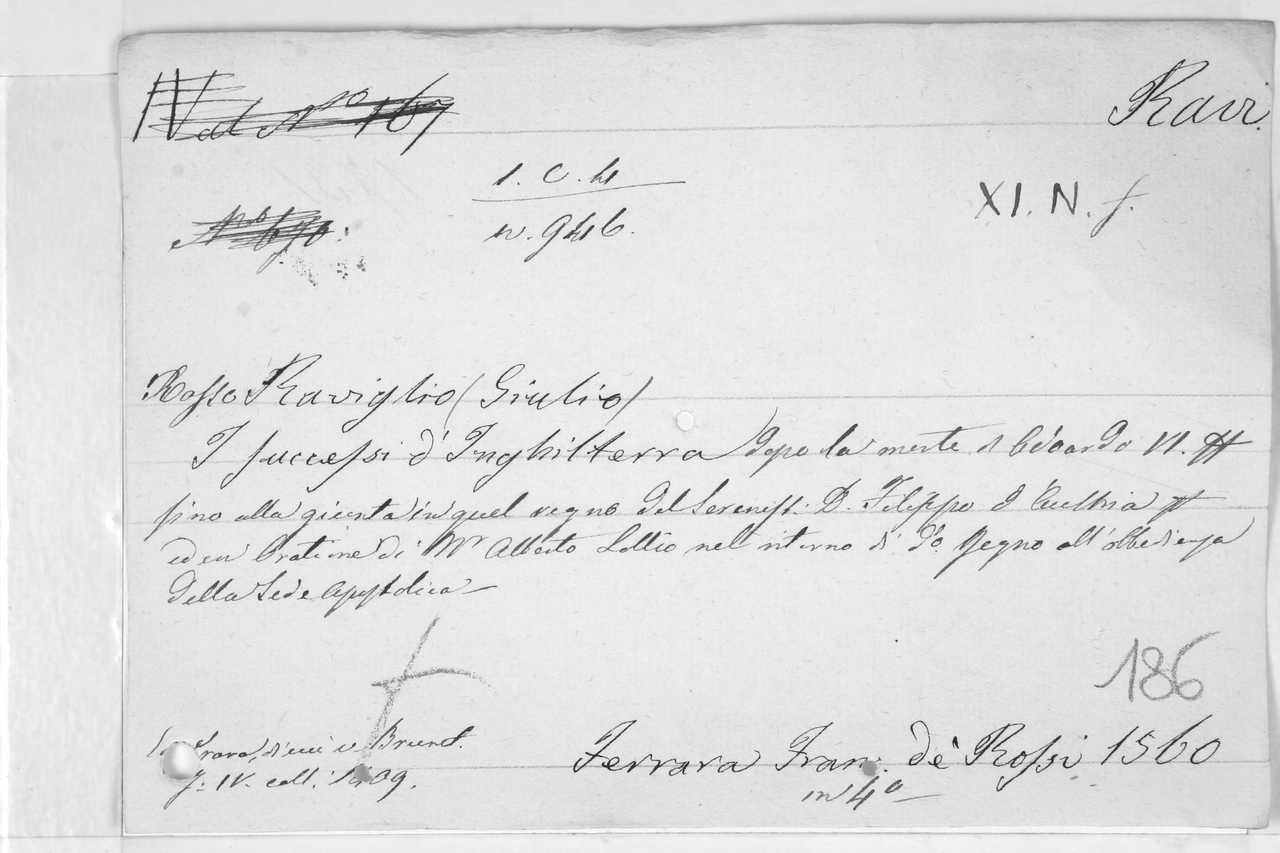 IV al Nº 167
Ravi.
1. C. 4
XI. N. f.
Nº 670.
n. 946.
Rosso Raviglio (Giulio)
I successi d'Inghilterra dopo la morte di Edoardo VI.
fino alla giunta in quel regno del Sereniss: D. Filippo d'Austria
ed un Oratione di Mr Alberto Lollio nel ritorno di do. Regno all'obbedienza
della Sede Apostolica —
186
rara, di cui v. Brunet.
Ferrara Fran. de' Rossi 1560
IV. coll: 1409.
in 4º —